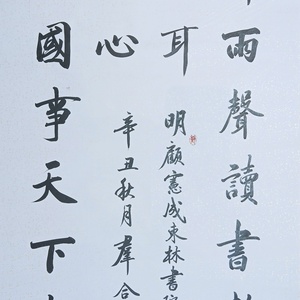 雨聲讀書
耳
明顧憲成東林書院
心
辛丑秋月羣合
國事天下